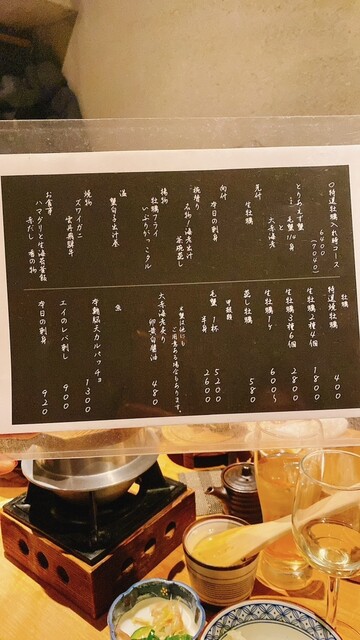 ○特選牡蠣入れ時コース
6400
(7040)
とりあえず蟹
毛蟹1/4身
と
大海老煮
先付
生牡蠣
向付
本日の刺身
板摺り
名物!海老出汁
茶碗蒸し
揚物
牡蠣フライ
いぶりがっこタル
温
蟹甲子出汁巻
焼物
ズワイガニ
雲丹飛騨牛
お食事
ハマグリと生海苔釜飯
赤だし 香の物
牡蠣
特選焼牡蠣 400
生牡蠣2種4個 1800
生牡蠣3種6個 2800
生牡蠣1ケ 600〜
蒸し牡蠣 580
甲殻類
毛蟹 1杯 5200
半身 2600
大海老煮炙り
卵黄白醤油 480
魚
本朝脳天カルパッチョ 1300
エイのレバ刺し 900
本日の刺身 920